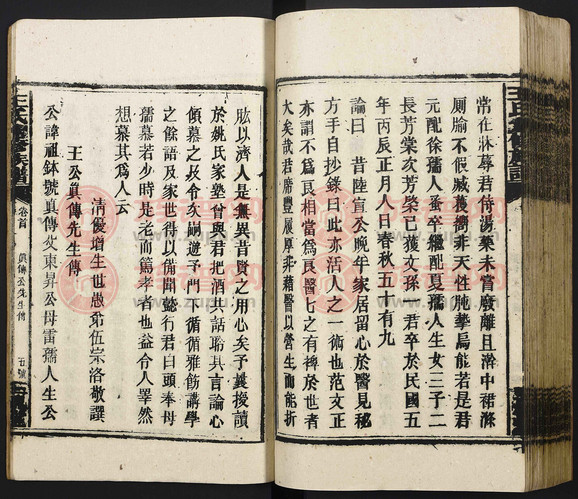 常在牀蓐君侍湯藥未嘗廢離且澣中裙滌
廁牏不假臧獲嚮非天性肫摯烏能若是君
元配徐孺人蚤卒繼配夏孺人生女三子二
長芳棠次芳榮己獲文孫一君卒於民國五
年丙辰正月八日春秋五十有九
論曰昔陸宣公晚年家居留心於醫見秘
方手自抄錄曰此亦活人之一術也范文正
亦謂不為良相當為良醫七之有裨於世者
大矣哉君席豐履厚非藉醫以營生而能折
肱以濟人是無異昔賢之用心矣予曩授讀
於姚氏家塾曾與君把酒共話聆其言論心
傾慕之及令嗣遊予門下循循雅飭講學
之餘語及家世得以備聞懿行君白頭奉母
孺慕若少時是老而篤孝者也益令人睪然
想慕其為人云
清優增生世愚弟伍宗洛敬譔
王公眞傳先生傳
公諱祖鉢號眞傳父東昇公母雷孺人生公
王氏族譜
卷首
眞傳公先生傳
五號
王氏修族譜